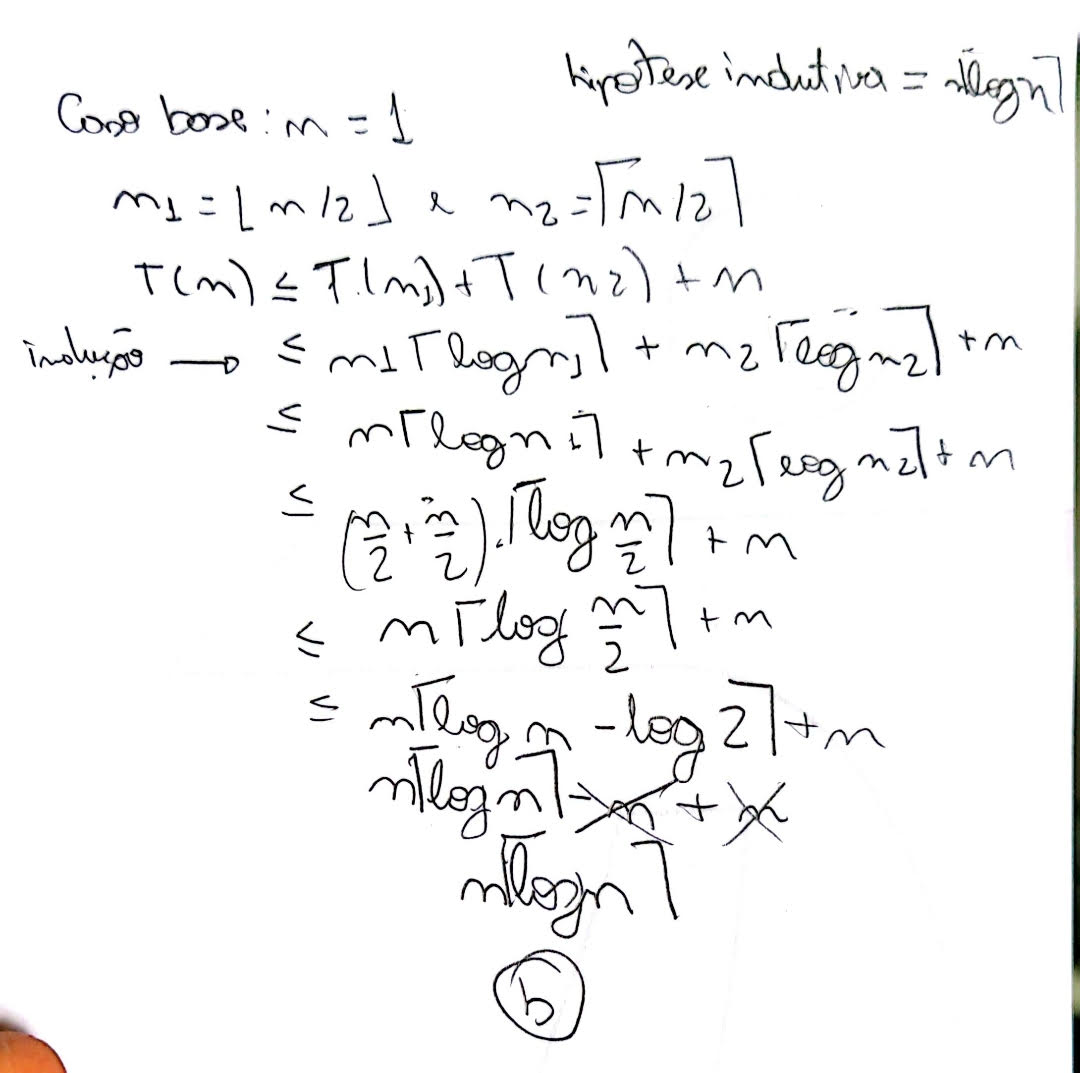 hipótese indutiva = n⌈log n⌉
Caso base: n = 1
n1 = ⌊n/2⌋ e n2 = ⌈n/2⌉
T(n) ≤ T(n1) + T(n2) + n
indução → ≤ n1⌈log n1⌉ + n2⌈log n2⌉ + n
≤ n⌈log n1⌉ + n2⌈log n2⌉ + n
≤ (n/2 + n/2).⌈log n/2⌉ + n
≤ n⌈log n/2⌉ + n
≤ n⌈log n - log 2⌉ + n
n⌈log n⌉ - n + n
n⌈log n⌉
b